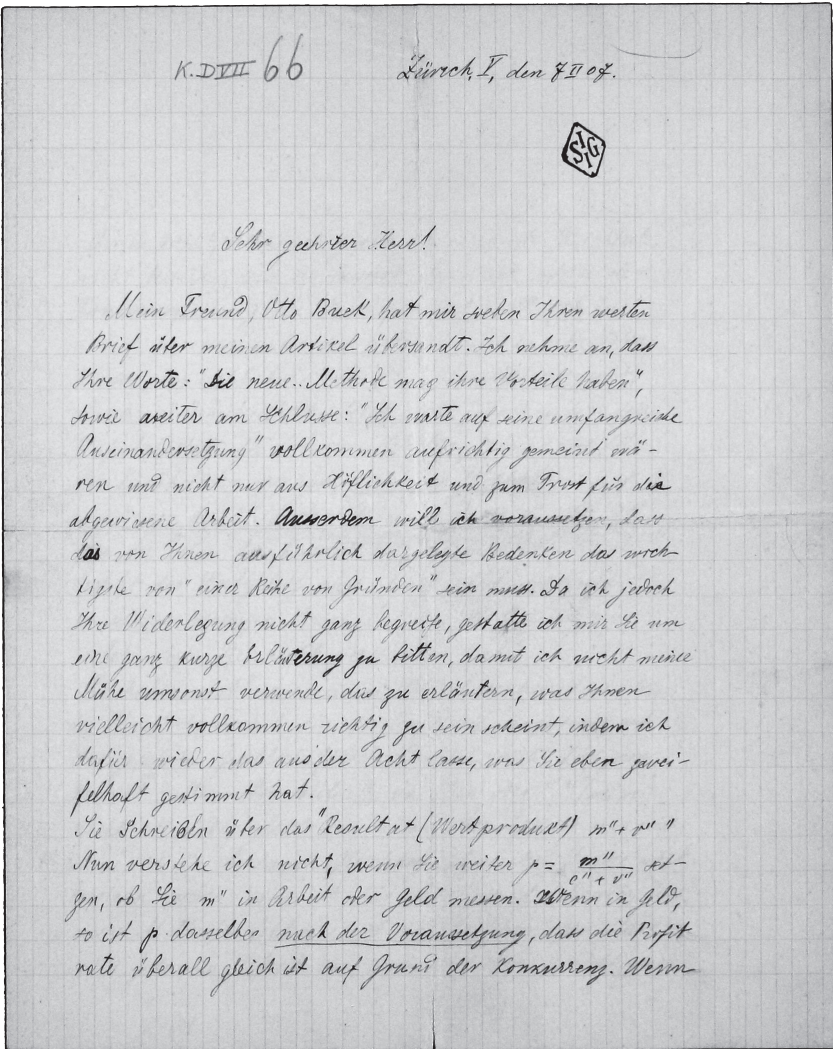 K.DVII 66
Zürich, V, den 7 II 07.
SIGI
Sehr geehrter Herr!
Mein Freund, Otto Buek, hat mir soeben Ihren werten
Brief über meinen Artikel übersandt. Ich nehme an, dass
Ihre Worte: "Die neue.. Methode mag ihre Vorteile haben",
sowie weiter am Schlusse: "Ich warte auf seine umfangreiche
Auseinandersetzung" vollkommen aufrichtig gemeint wä-
ren und nicht nur aus Höflichkeit und zum Trost für die
abgewiesene Arbeit. Ausserdem will ich voraussetzen, dass
das von Ihnen ausführlich dargelegte Bedenken das wich-
tigste von "einer Reihe von Gründen" sein muss. Da ich jedoch
Ihre Widerlegung nicht ganz begreife, gestatte ich mir Sie um
eine ganz kurze Erläuterung zu bitten, damit ich nicht meine
Mühe umsonst verwende, das zu erläutern, was Ihnen
vielleicht vollkommen richtig zu sein scheint, indem ich
dafür wieder das aus der Acht lasse, was Sie eben zwei-
felhaft gestimmt hat.
Sie Schreiben über das "Resultat (Wertprodukt) m" + v" "
Nun verstehe ich nicht, wenn Sie weiter p = m" / c" + v" set-
zen, ob Sie m" in Arbeit oder Geld messen. Wenn in Geld,
so ist p dasselbe nach der Voraussetzung, dass die Profit
rate überall gleich ist auf Grund der Konkurrenz. Wenn